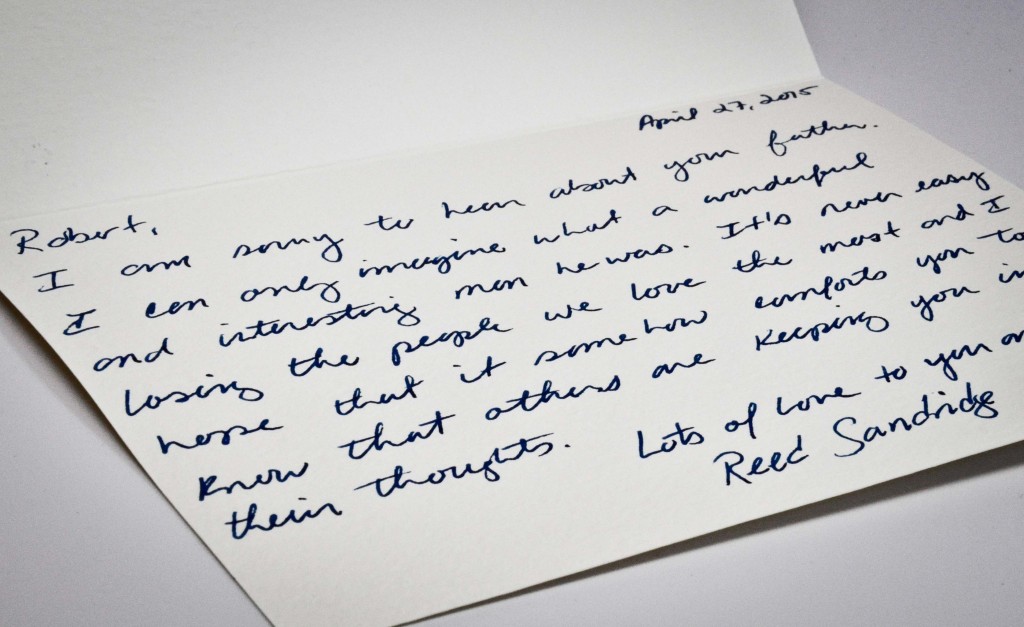 April 27, 2015
Robert,
I am sorry to hear about your father.
I can only imagine what a wonderful
and interesting man he was. It's never easy
losing the people we love the most and I
hope that it somehow comforts you to
know that others are keeping you in
their thoughts. Lots of love to you
Reed Sandridge